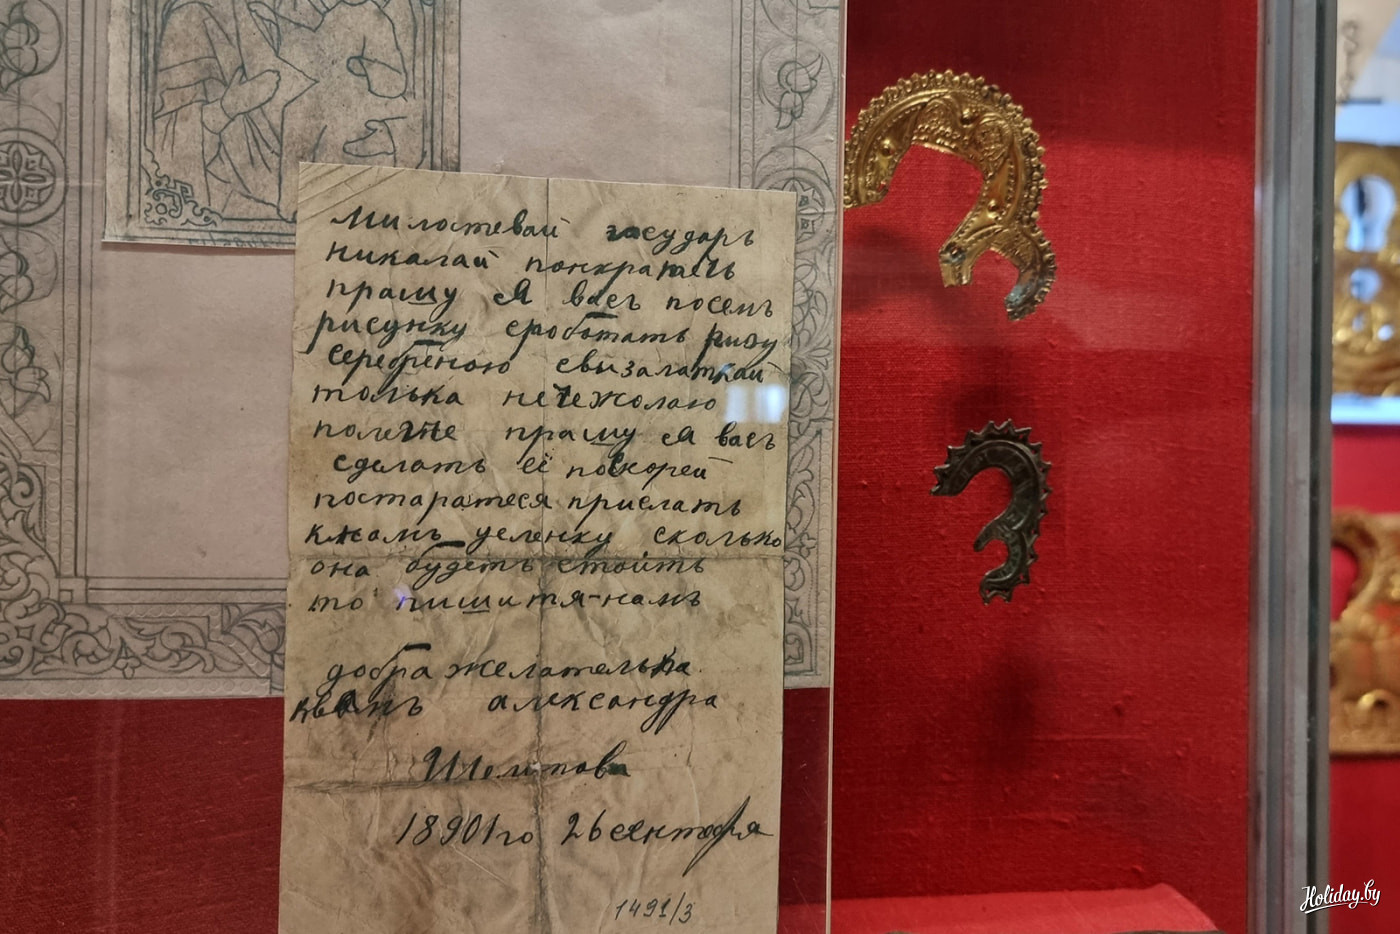 Милостевай государь
николай понкратичь
прашу Я васъ посемъ
рисунку сроботать ризу
серебреною свызалаткай
толька нетежолаю
полегче прашу Я васъ
сделать её поскорей
постаратеся прислать
кнамъ уеленку сколько
она будетъ стоить
то пишитя-намъ
добра желателька
квамъ александра
18901го 26 сентебря
1491/3
Holiday.by